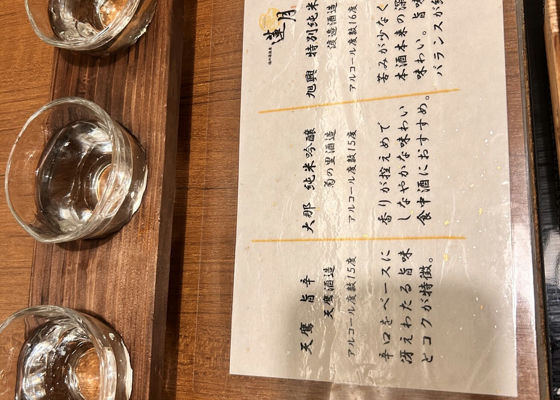 蓮月
天鷹 旨辛
天鷹酒造
アルコール度数15度
辛口をベースに
冴えわたる旨味
とコクが特徴。
大那 純米吟醸
菊の里酒造
アルコール度数15度
香りが控えめで
しなやかな味わい
食中酒におすすめ。
旭興 特別純米
渡邉酒造
アルコール度数16度
苦みが少なく
本酒本来の深
味わい。旨味
バランスが